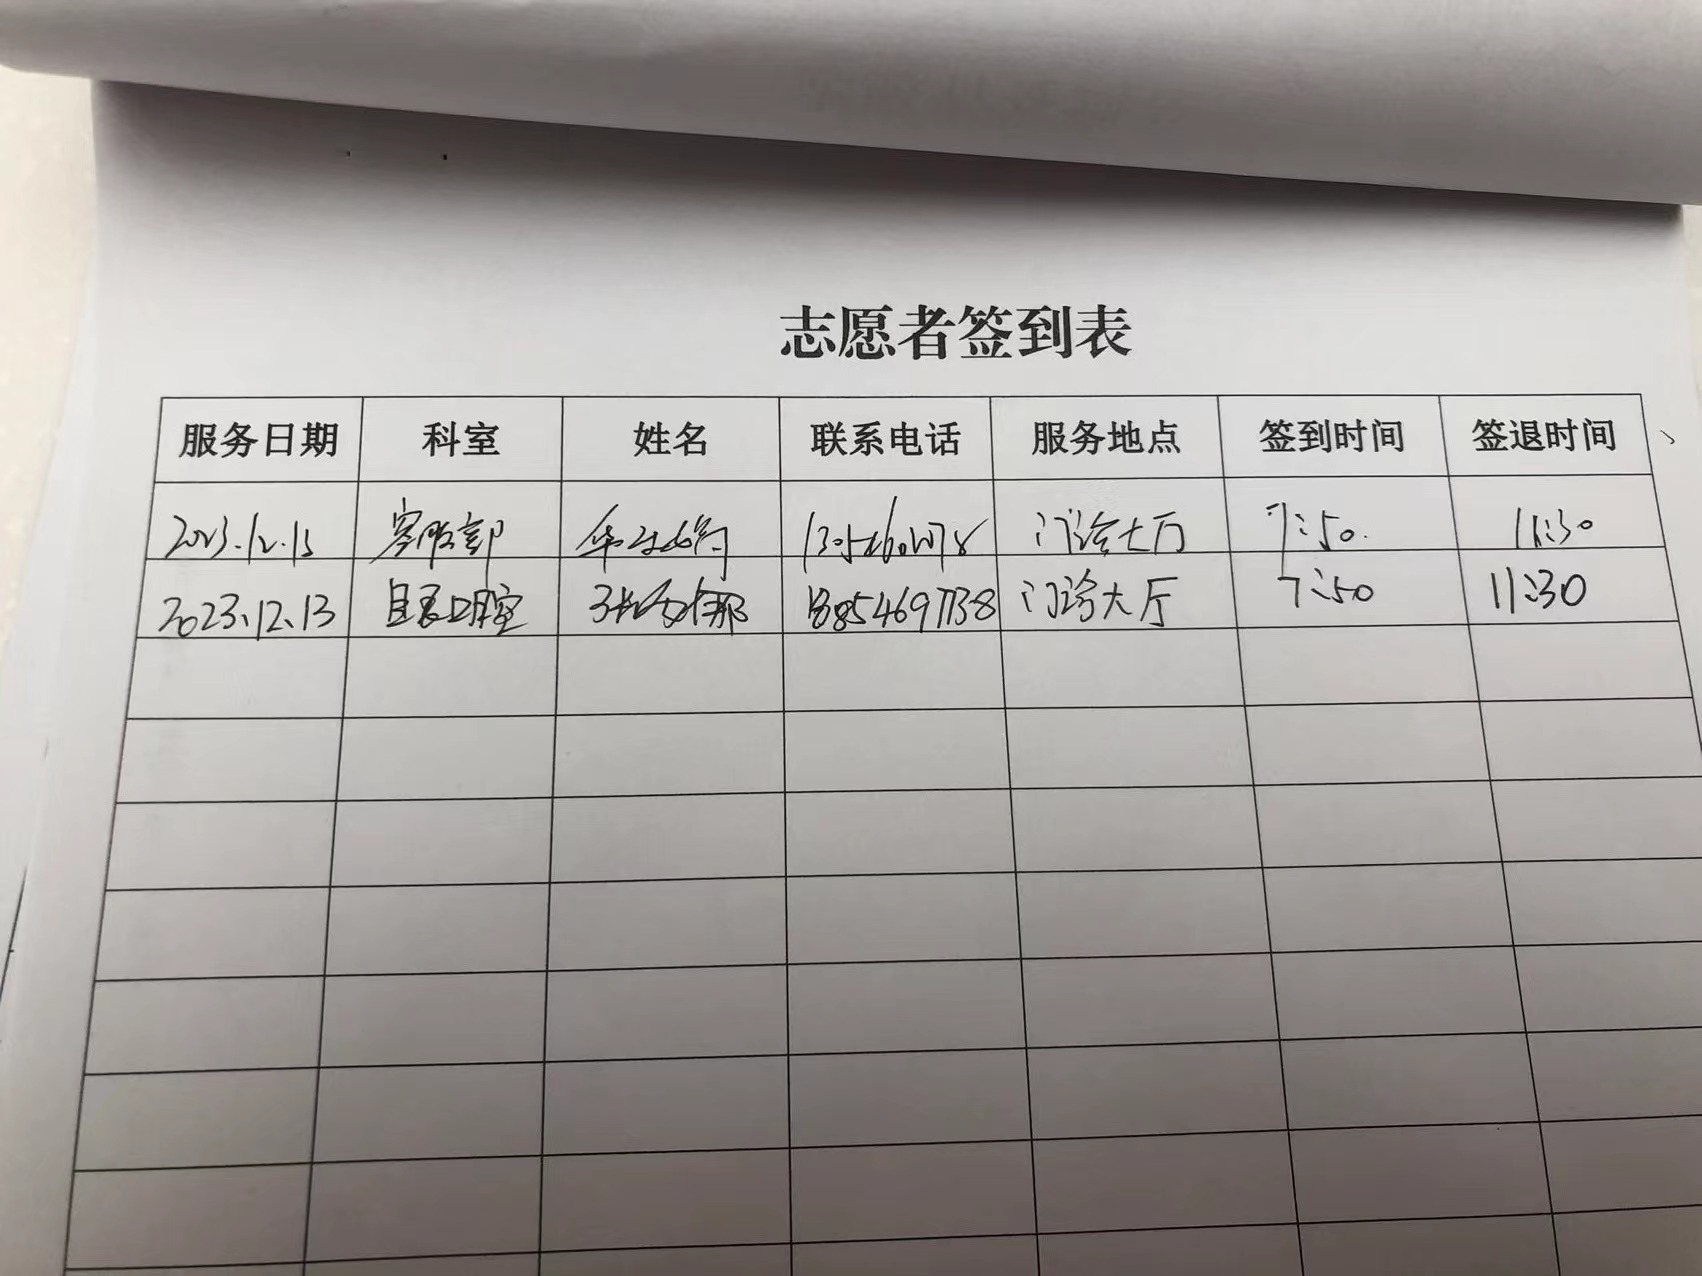 志愿者签到表
服务日期 科室 姓名 联系电话 服务地点 签到时间 签退时间
2023.12.13 客服部 门诊大厅 7:50. 11:30
2023.12.13 口腔 门诊大厅 7:50 11:30